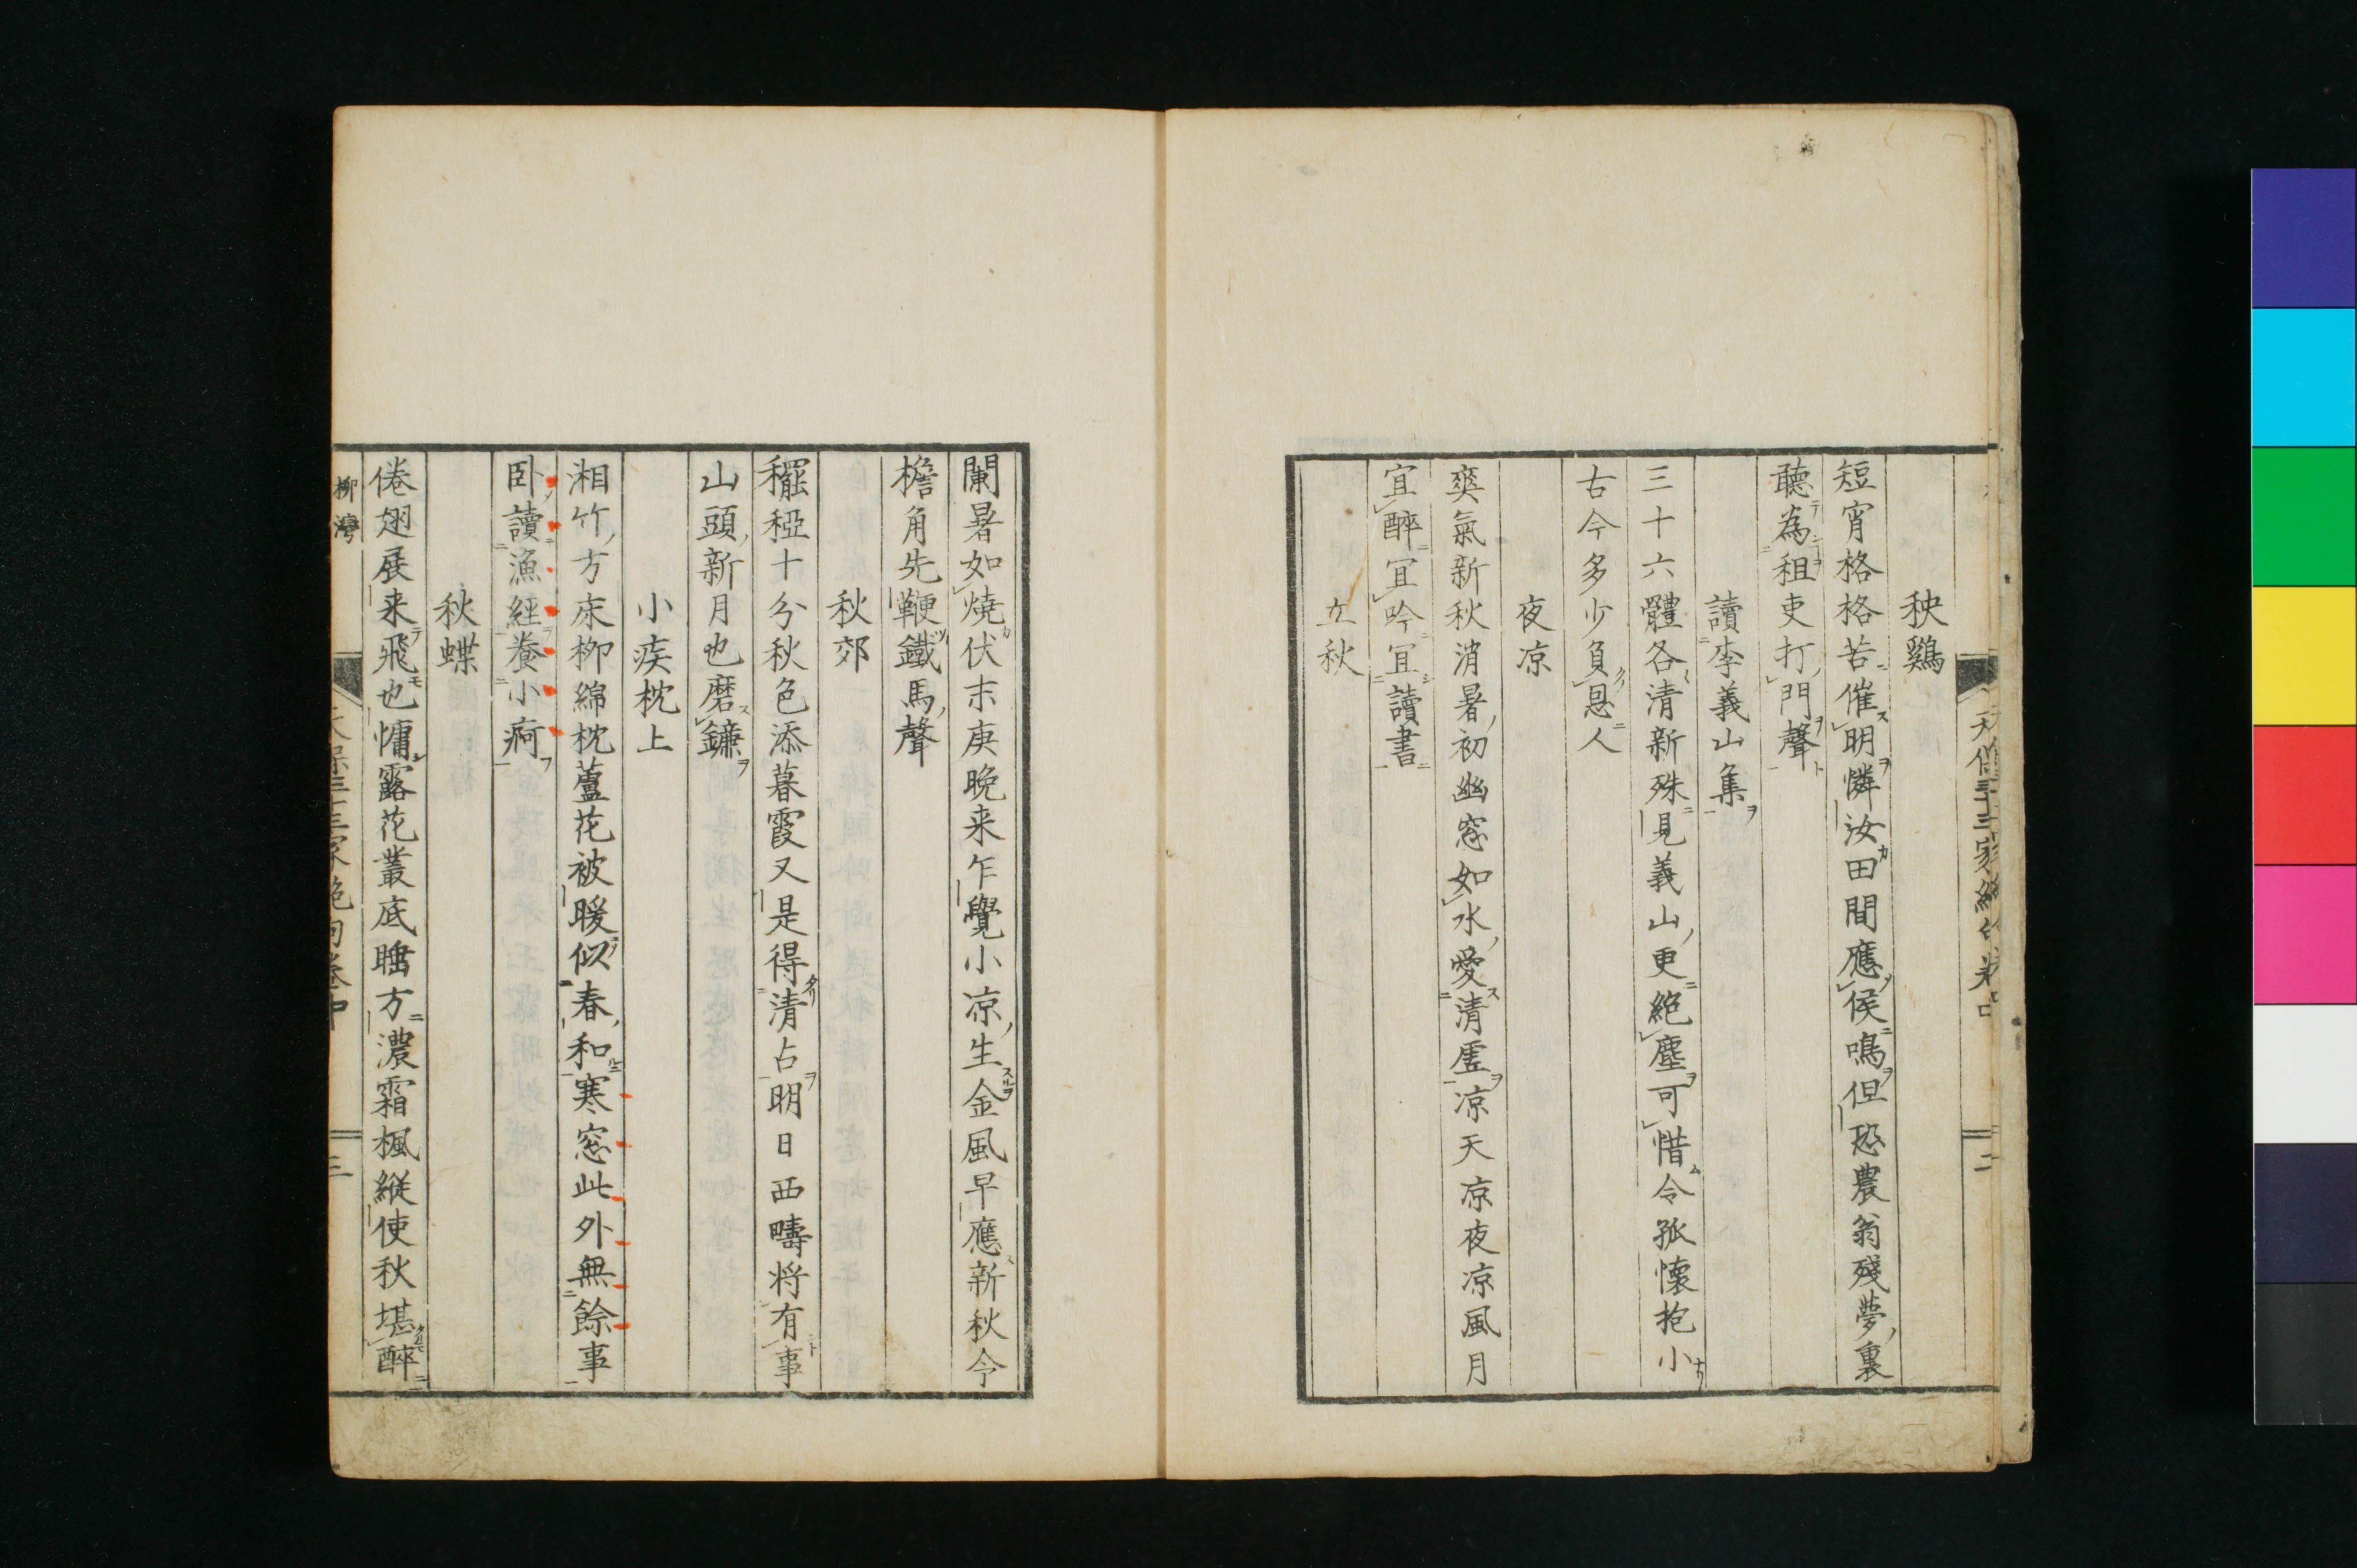 秧鷄
短宵格格苦催明憐汝田間應候鳴但恐農翁殘夢裏
聽為租吏打門聲
讀李義山集
三十六體各清新殊見義山更絕塵可惜令孤懷抱小
古今多少負恩人
夜凉
爽氣新秋消暑初幽窓如水愛清虛凉天凉夜凉風月
宜醉宜吟宜讀書
立秋
闌暑如燒伏末庚晚来乍覺小凉生金風早應新秋令
檐角先鞭鐵馬聲
秋郊
䆉稏十分秋色添暮霞又是得清占明日西疇将有事
山頭新月也磨鐮
小疾枕上
湘竹方床柳綿枕蘆花被暖似春和寒窓此外無餘事
卧讀漁經養小痾
秋蝶
倦翅展来飛也慵露花叢底睡方濃霜楓縦使秋堪醉
柳灣
天保三十三家絶句卷中
三